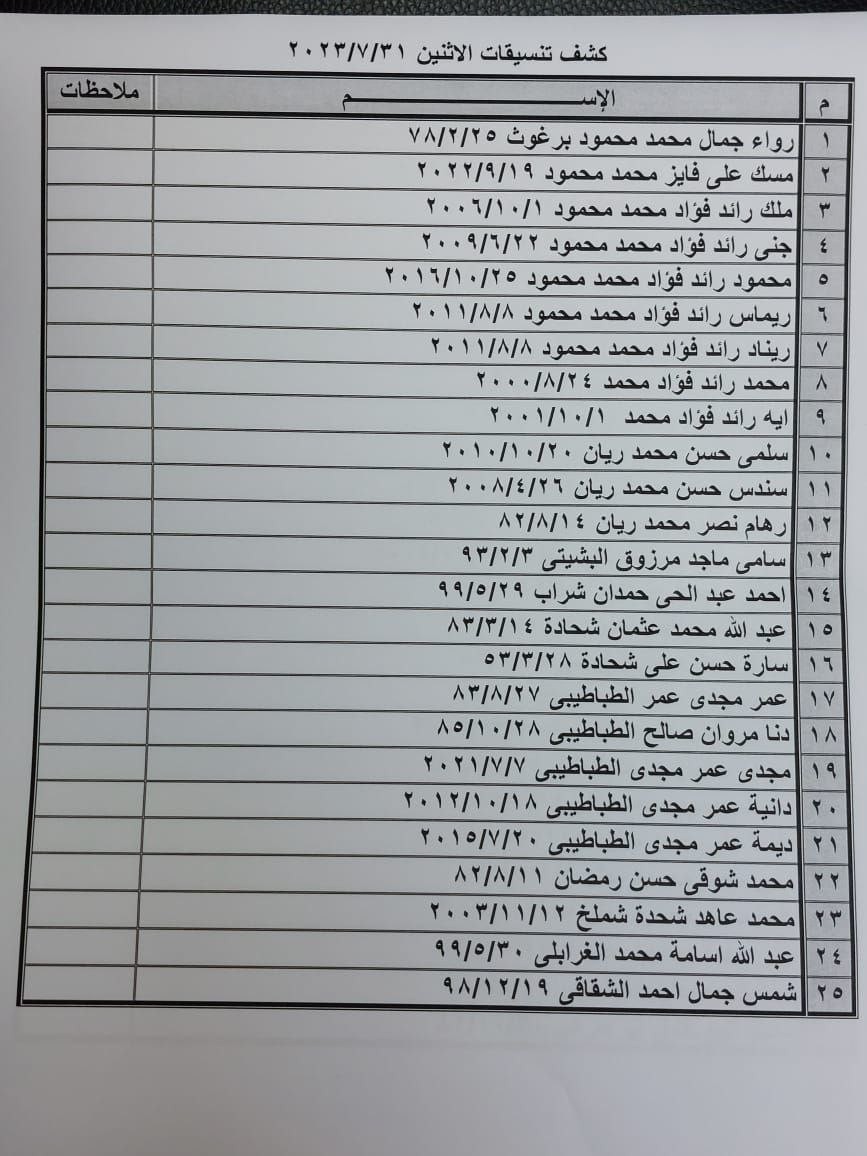 كشف تنسيقات الاثنين ٢٠٢٣/٧/٣١
م الإســــــــم ملاحظات
١ رواء جمال محمد محمود برغوث ٧٨/٢/٢٥
٢ مسك على فايز محمد محمود ٢٠٢٢/٩/١٩
٣ ملك رائد فؤاد محمد محمود ٢٠٠٦/١٠/١
٤ جنى رائد فؤاد محمد محمود ٢٠٠٩/٦/٢٢
٥ محمود رائد فؤاد محمد محمود ٢٠١٦/١٠/٢٥
٦ ريماس رائد فؤاد محمد محمود ٢٠١١/٨/٨
٧ ريناد رائد فؤاد محمد محمود ٢٠١١/٨/٨
٨ محمد رائد فؤاد محمد ٢٠٠٠/٨/٢٤
٩ ايه رائد فؤاد محمد ٢٠٠١/١٠/١
١٠ سلمى حسن محمد ريان ٢٠١٠/١٠/٢٠
١١ سندس حسن محمد ريان ٢٠٠٨/٤/٢٦
١٢ رهام نصر محمد ريان ٨٢/٨/١٤
١٣ سامى ماجد مرزوق البشيتى ٩٣/٢/٣
١٤ احمد عبد الحى حمدان شراب ٩٩/٥/٢٩
١٥ عبد الله محمد عثمان شحادة ٨٣/٣/١٤
١٦ سارة حسن على شحادة ٥٣/٣/٢٨
١٧ عمر مجدى عمر الطباطيبى ٨٣/٨/٢٧
١٨ دنا مروان صالح الطباطيبى ٨٥/١٠/٢٨
١٩ مجدى عمر مجدى الطباطيبى ٢٠٢١/٧/٧
٢٠ دانية عمر مجدى الطباطيبى ٢٠١٢/١٠/١٨
٢١ ديمة عمر مجدى الطباطيبى ٢٠١٥/٧/٢٠
٢٢ محمد شوقى حسن رمضان ٨٢/٨/١١
٢٣ محمد عاهد شحدة شملخ ٢٠٠٣/١١/١٢
٢٤ عبد الله اسامة محمد الغرابلى ٩٩/٥/٣٠
٢٥ شمس جمال احمد الشقاقى ٩٨/١٢/١٩